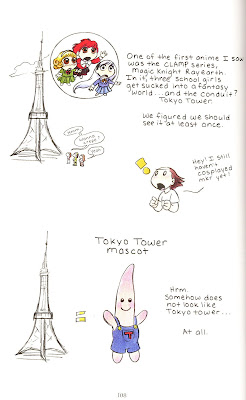 One of the first anime I saw
was the CLAMP series,
Magic Knight Rayearth.
In it, three school girls
get sucked into a fantasy
world... and the conduit?
Tokyo Tower.
We figured we should
see it at least once.
!
Hey! I still
haven't
cosplayed
mkr yet!
Tokyo Tower
mascot
=
T
Hrm.
Somehow does
not look like
Tokyo tower...
At all.
108